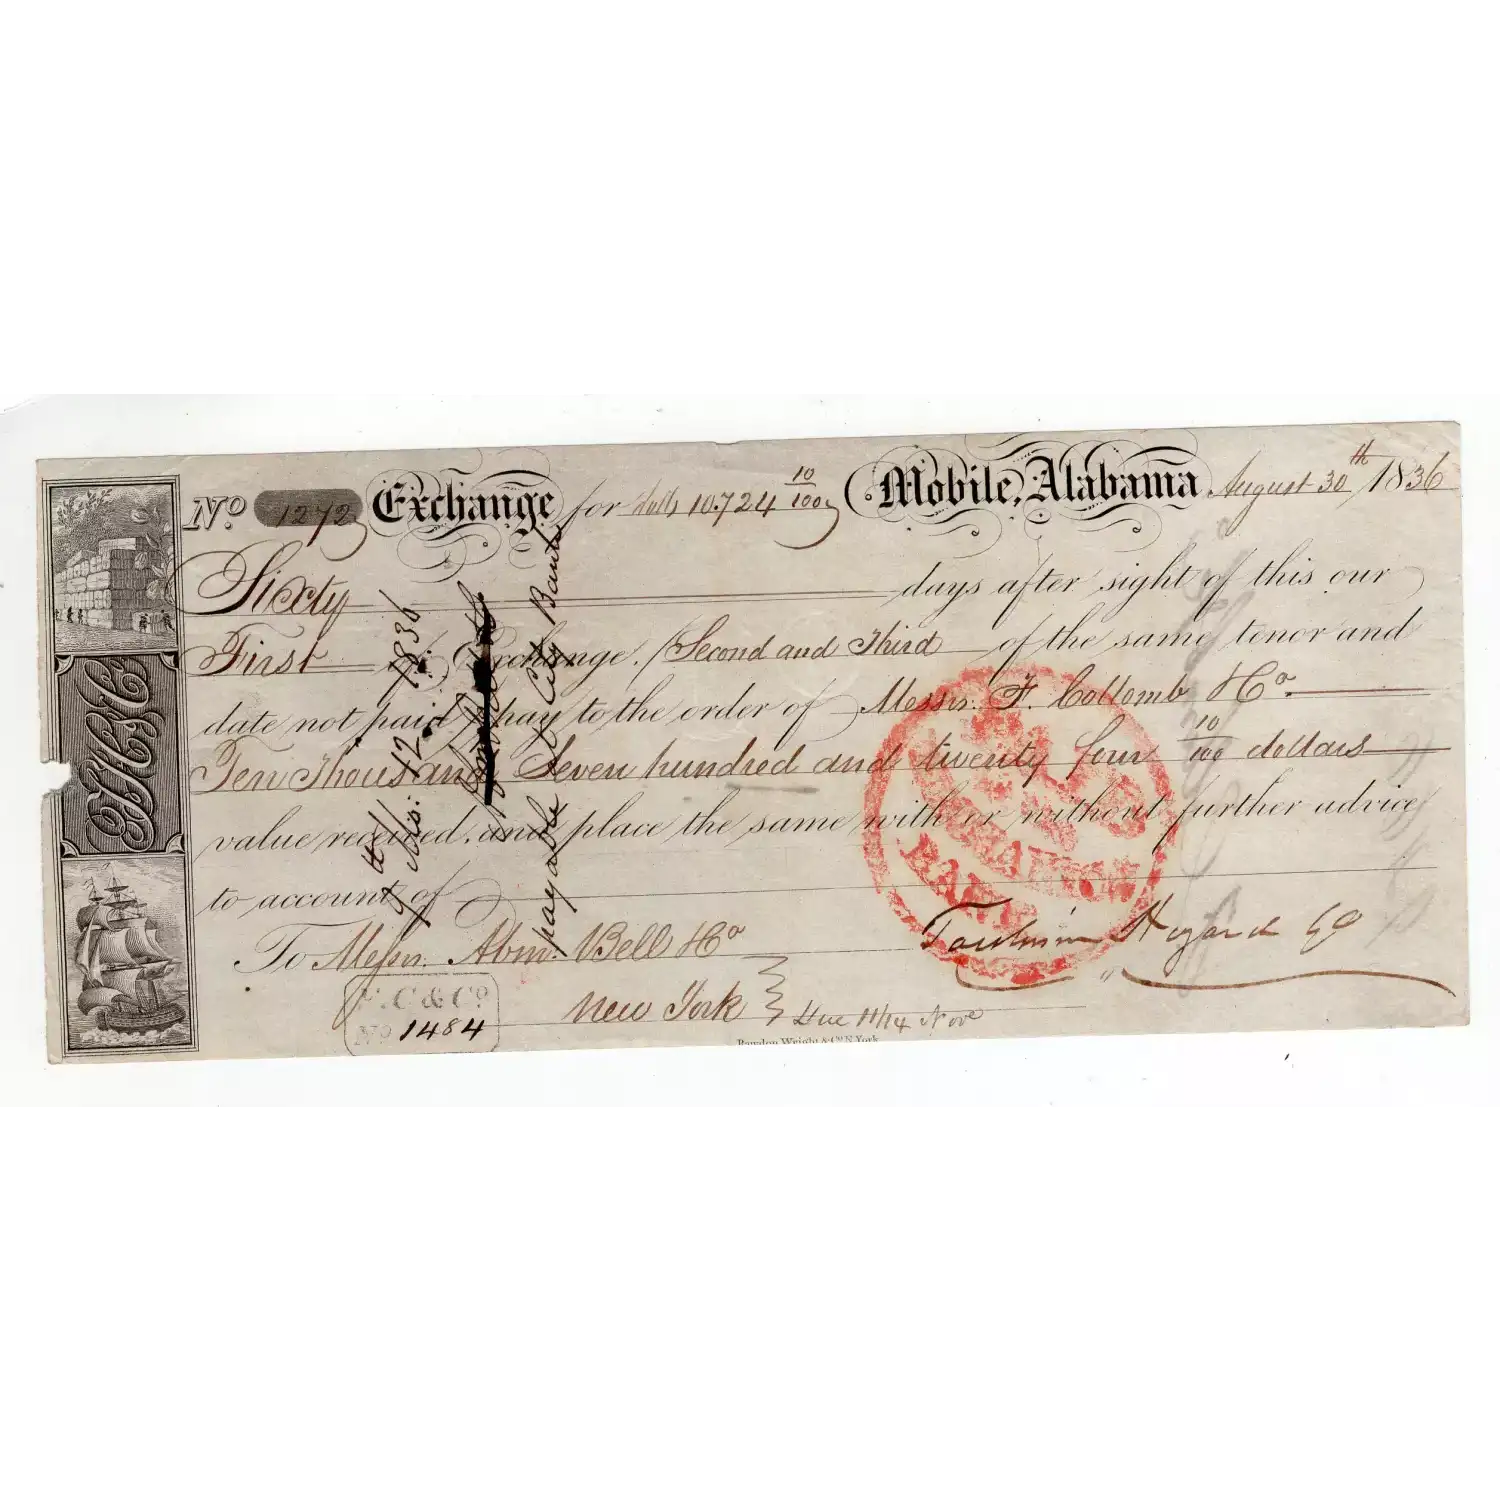 No 1272 Exchange for dolls 10.724 10/100 Mobile, Alabama August 30th 1836
Sixty days after sight of this our
First of Exchange. (Second and Third of the same tenor and
date not paid) pay to the order of Messrs. F. Collomb & Co.
Ten Thousand Seven hundred and twenty four 10/100 dollars
value received, and place the same with or without further advice
to account of
To Messrs. Abm. Bell & Co Toulmin Hazard & Co
New York Due 11/14 Nove
F. C & Co
No 1484
Rawdon Wright & Co N. York
12 1836
payable City Bank
TH&C
BANK